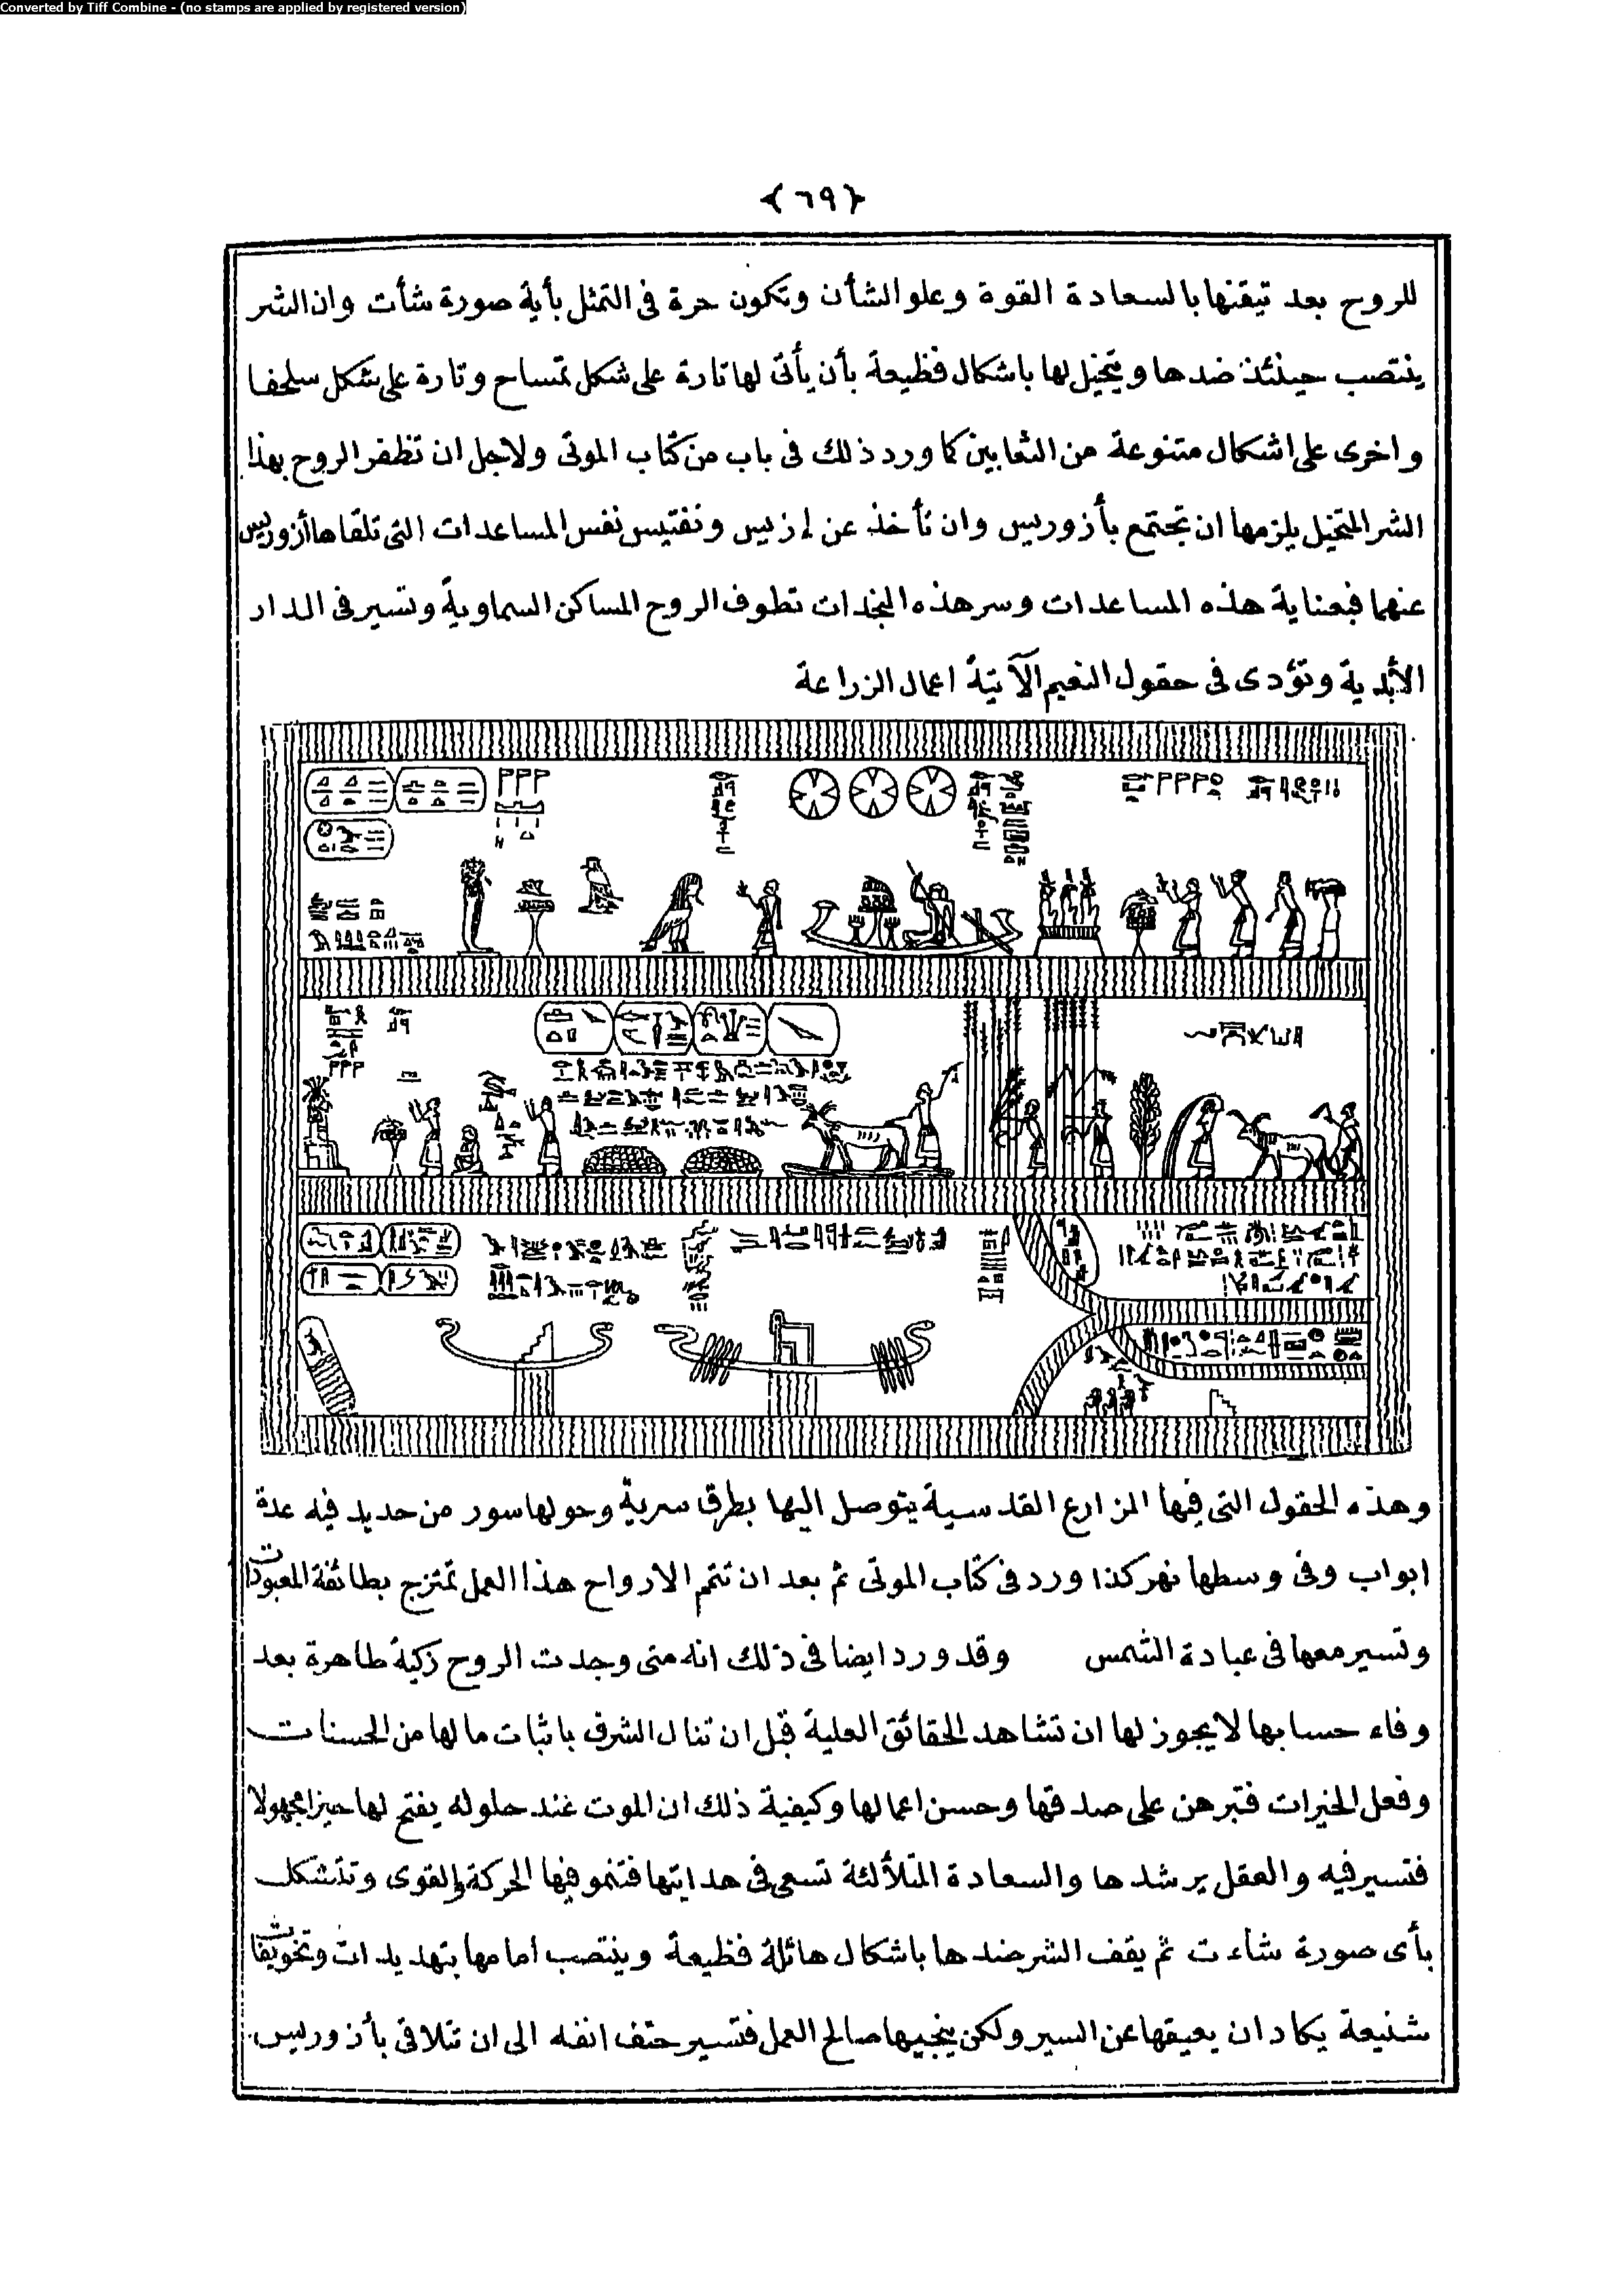 Converted by Tiff Combine - (no stamps are applied by registered version)
{٦٩}
للروح بعد تيقنها بالسعادة القوة وعلو الشأن وتكون حرة فى التمثل بأية صورة شأت وان الشر
ينتصب حينئذ ضدها ويتخيل لها باشكال فظيعة بأن يأتى لها تارة على شكل تمساح وتارة على شكل سلحفا
واخرى على اشكال متنوعة من الثعابين كما ورد ذلك فى باب من كتاب الموتى ولاجل ان تظفر الروح بهذا
الشر المتخيل يلزمها ان تجتمع بأزوريس وان تأخذ عن إزيس ونفتيس نفس المساعدات التى تلقاها أزوريس
عنهما فبعناية هذه المساعدات وسر هذه النجدات تطوف الروح المساكن السماوية وتسير فى الدار
الأبدية وتؤدى فى حقول النعيم الآتية اعمال الزراعة
وهذه الحقول التى فيها المزارع القدسية يتوصل اليها بطرق سرية وحولها سور من حديد فيه عدة
ابواب وفى وسطها نهر كذا ورد فى كتاب الموتى ثم بعد ان تتم الارواح هذا العمل تمتزج بطائفة المعبودات
وتسير معها فى عبادة الشمس وقد ورد ايضا فى ذلك انه متى وجدت الروح زكية طاهرة بعد
وفاء حسابها لا يجوز لها ان تشاهد الحقائق العلية قبل ان تنال الشرف باثبات ما لها من الحسنات
وفعل الخيرات فتبرهن على صدقها وحسن اعمالها وكيفية ذلك ان الموت عند حلوله يفتح لها حيزا مجهولا
فتسير فيه والعقل يرشدها والسعادة المتلألئة تسعى فى هدايتها فتنمو فيها الحركة والقوى وتتشكل
بأى صورة شاءت ثم يقف الشر ضدها باشكال هائلة فظيعة وينتصب امامها بتهديدات وتخويفات
شنيعة يكاد ان يعيقها عن السير ولكن ينجيها صالح العمل فتسير حتف انفه الى ان تتلاقى بأزوريس